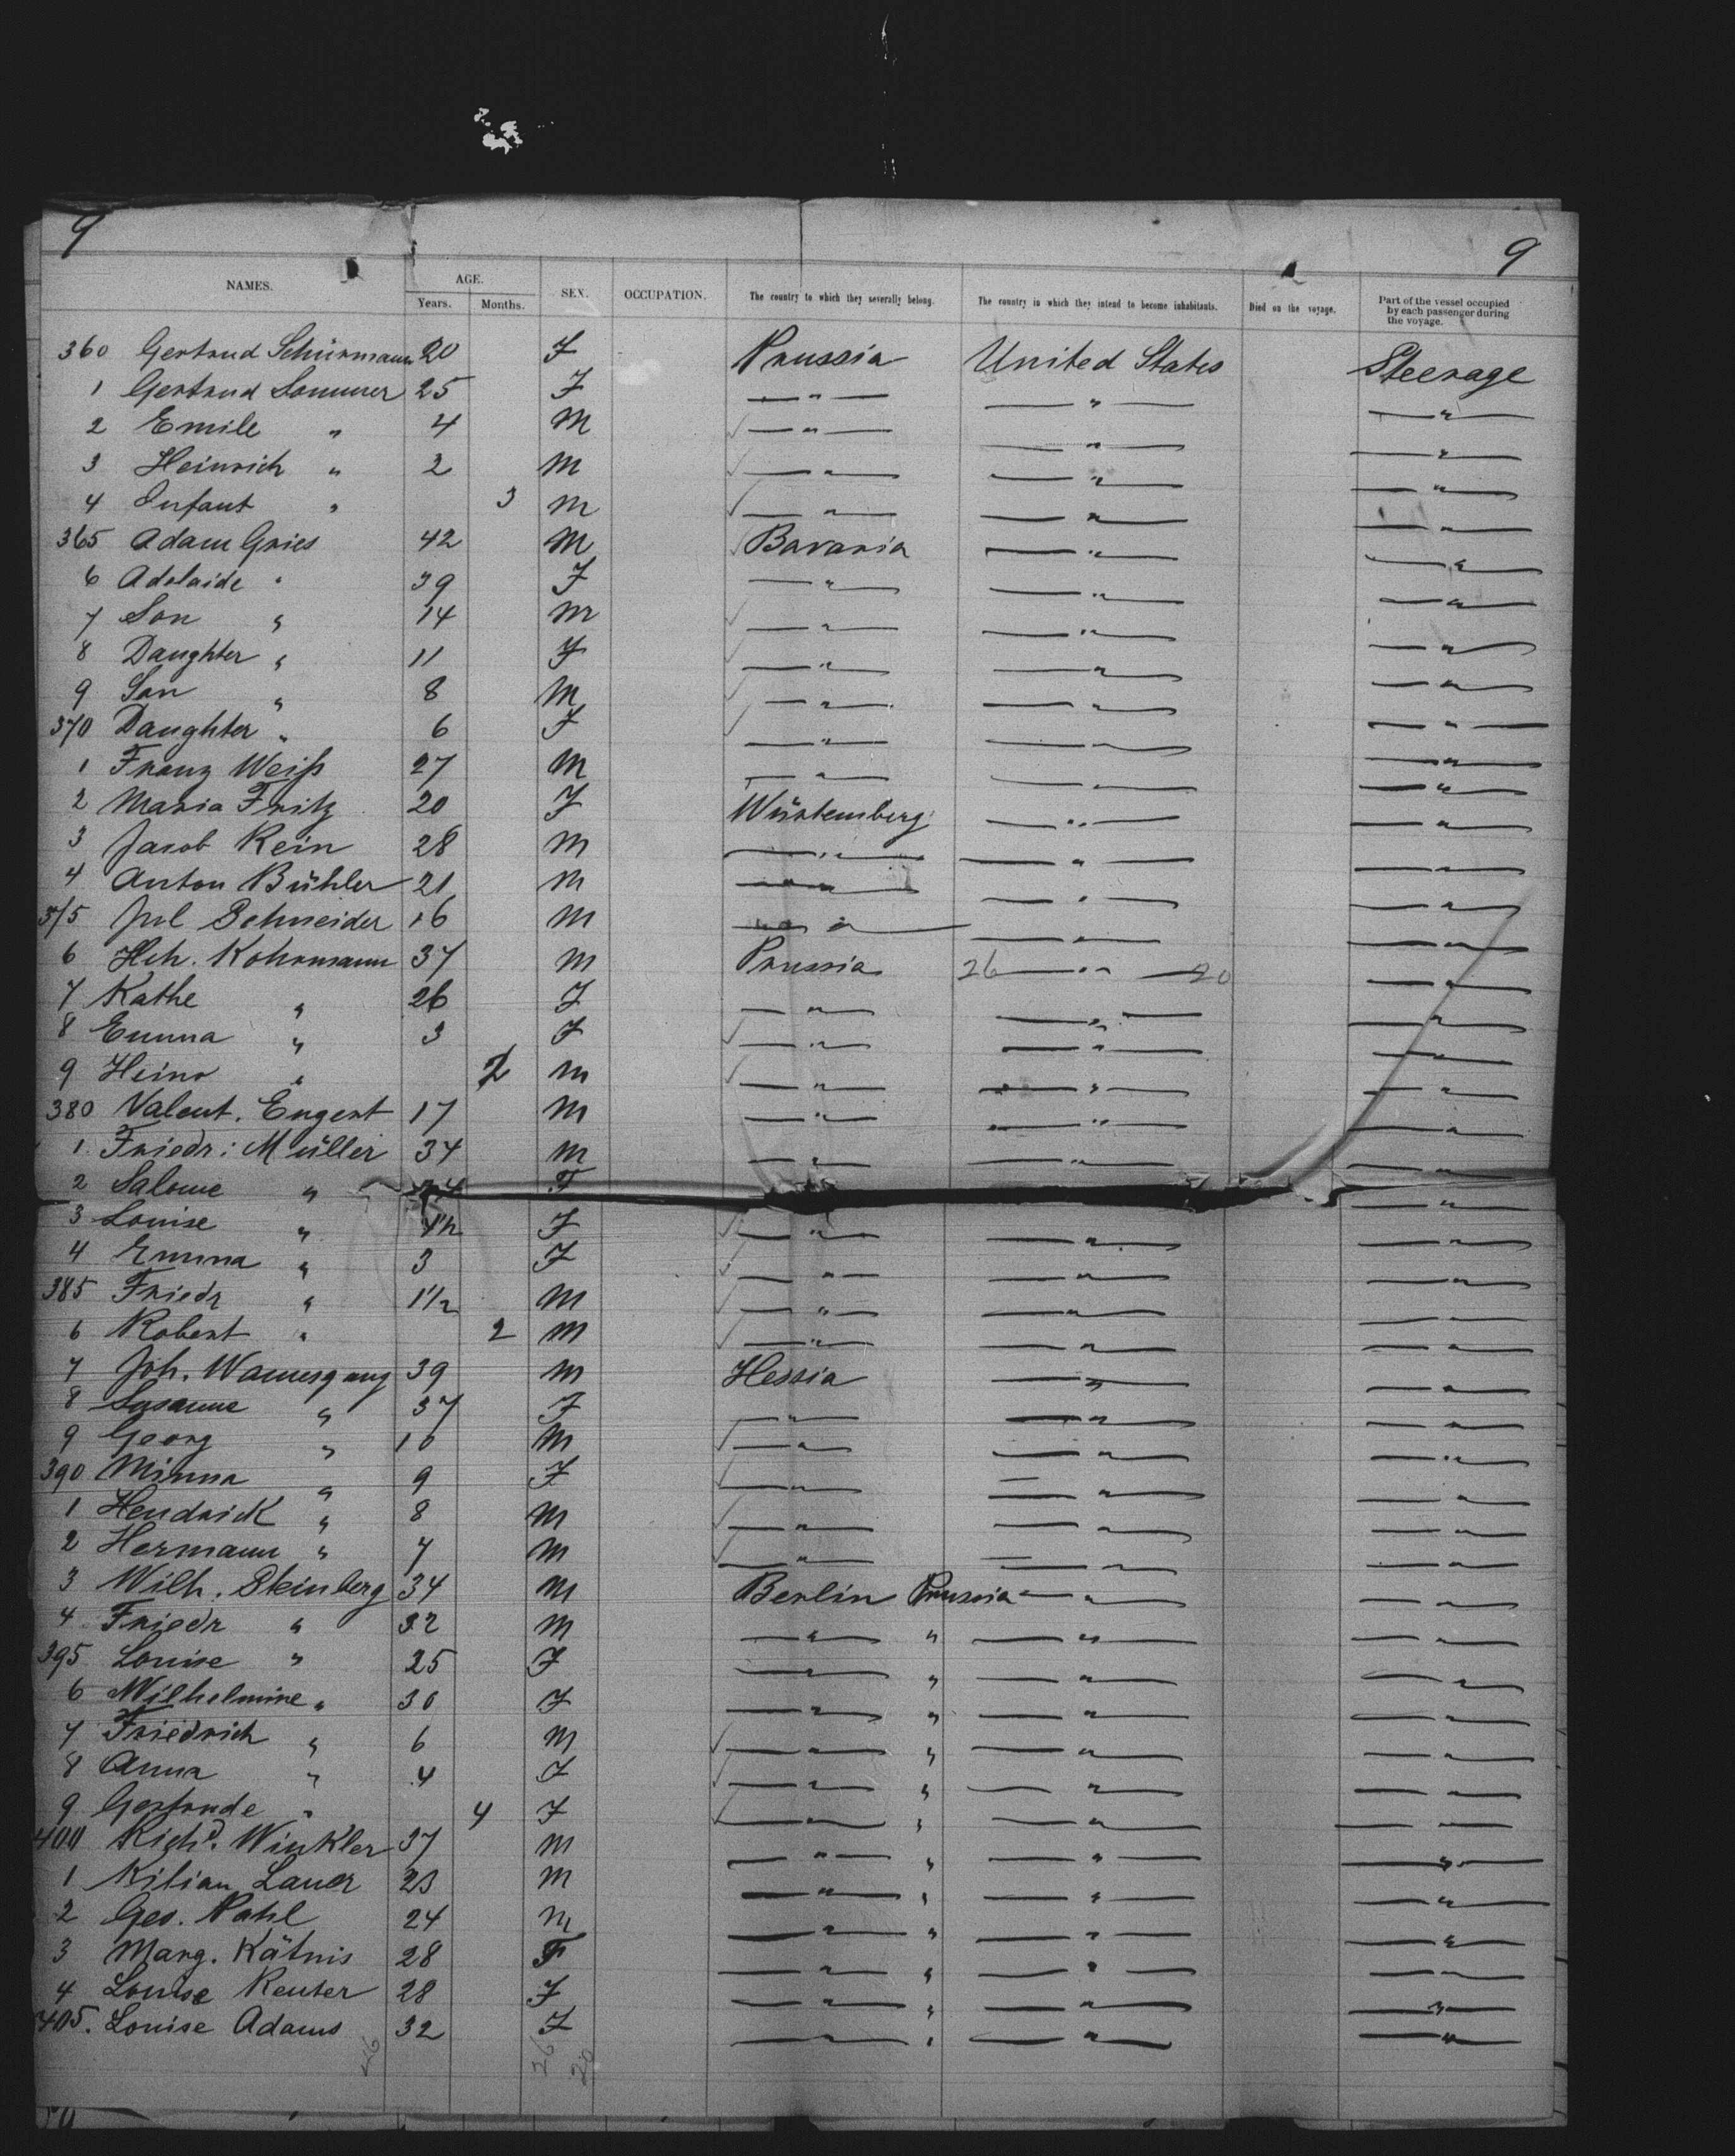 9 9
NAMES. AGE. SEX. OCCUPATION. The country to which they severally belong. The country in which they intend to become inhabitants. Died on the voyage. Part of the vessel occupied by each passenger during the voyage.
Years. Months.
360 Gertrud Schürmann 20 F Prussia United States Steerage
1 Gertrud Sommer 25 F — " — — " — — " —
2 Emile " 4 M — " — — " — — " —
3 Heinrich " 2 M — " — — " — — " —
4 Infant " 3 M — " — — " — — " —
365 Adam Gries 42 M Bavaria — " — — " —
6 Adelaide " 39 F — " — — " — — " —
7 Son " 14 M — " — — " — — " —
8 Daughter " 11 F — " — — " — — " —
9 Son " 8 M — " — — " — — " —
370 Daughter " 6 F — " — — " — — " —
1 Franz Weiß 27 M — " — — " — — " —
2 Maria Fritz 20 F Würtemberg — " — — " —
3 Jacob Rein 28 M — " — — " — — " —
4 Anton Bühler 21 M — " — — " — — " —
375 Jul Schneider 16 M — " — — " — — " —
6 Hch. Kohrmann 37 M Prussia 26 — " — 20 — " —
7 Kathe " 26 F — " — — " — — " —
8 Emma " 3 F — " — — " — — " —
9 Heinr " 2 M — " — — " — — " —
380 Valent. Engert 17 M — " — — " — — " —
1 Friedr: Müller 34 M — " — — " — — " —
2 Salome " F — " —
3 Louise " 4½ F — " — — " — — " —
4 Emma " 3 F — " — — " — — " —
385 Friedr " 1½ M — " — — " — — " —
6 Robert " 2 M — " — — " — — " —
7 Joh. Wamesgang 39 M Hessia — " — — " —
8 Susanne " 37 F — " — — " — — " —
9 Georg " 10 M — " — — " — — " —
390 Minna " 9 F — " — — " — — " —
1 Hendrick " 8 M — " — — " — — " —
2 Hermann " 7 M — " — — " — — " —
3 Wilh. Steinberg 34 M Berlin Prussia — " — — " —
4 Friedr " 32 M — " — " — " — — " —
395 Louise " 25 F — " — " — " — — " —
6 Wilhelmine " 30 F — " — " — " — — " —
7 Friedrich " 6 M — " — " — " — — " —
8 Anna " 4 F — " — " — " — — " —
9 Gertrude " 4 F — " — " — " — — " —
400 Richd. Winkler 37 M — " — " — " — — " —
1 Kilian Lauer 23 M — " — " — " — — " —
2 Geo. Pahl 24 M — " — " — " — — " —
3 Marg. Kätnis 28 F — " — " — " — — " —
4 Louise Reuter 28 F — " — " — " — — " —
405. Louise Adams 32 F — " — " — " — — " —
46 26 20